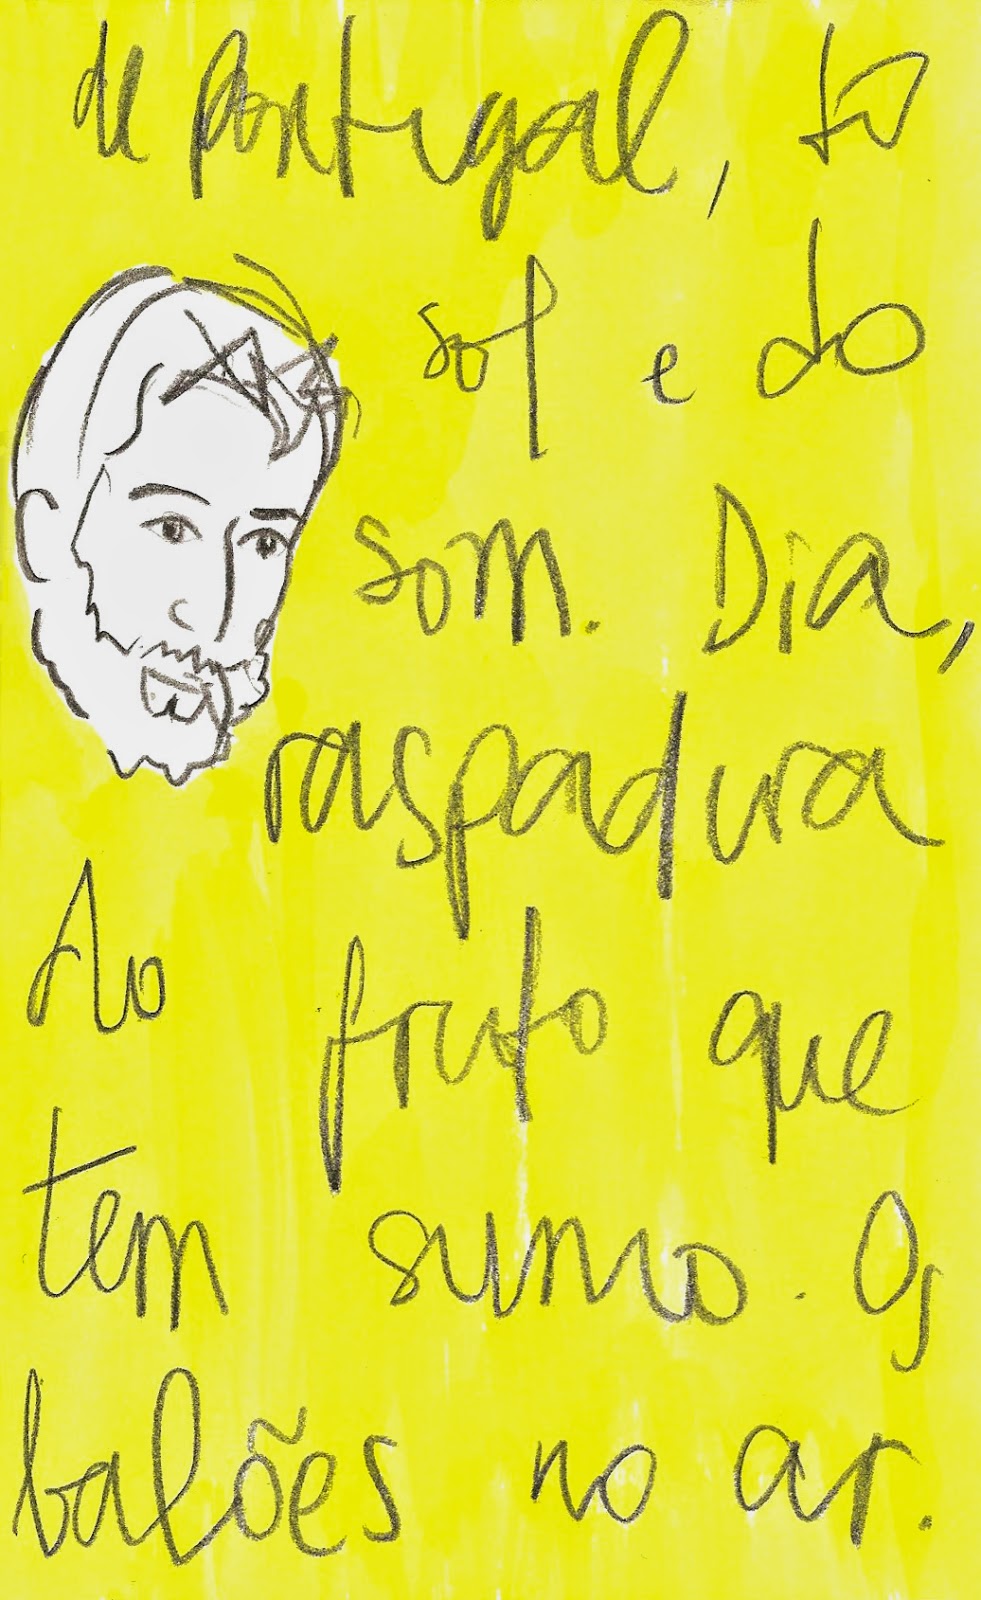 de Portugal, do
sol e do
som. Dia,
raspadura
do fruto que
tem sumo. Os
balões no ar.